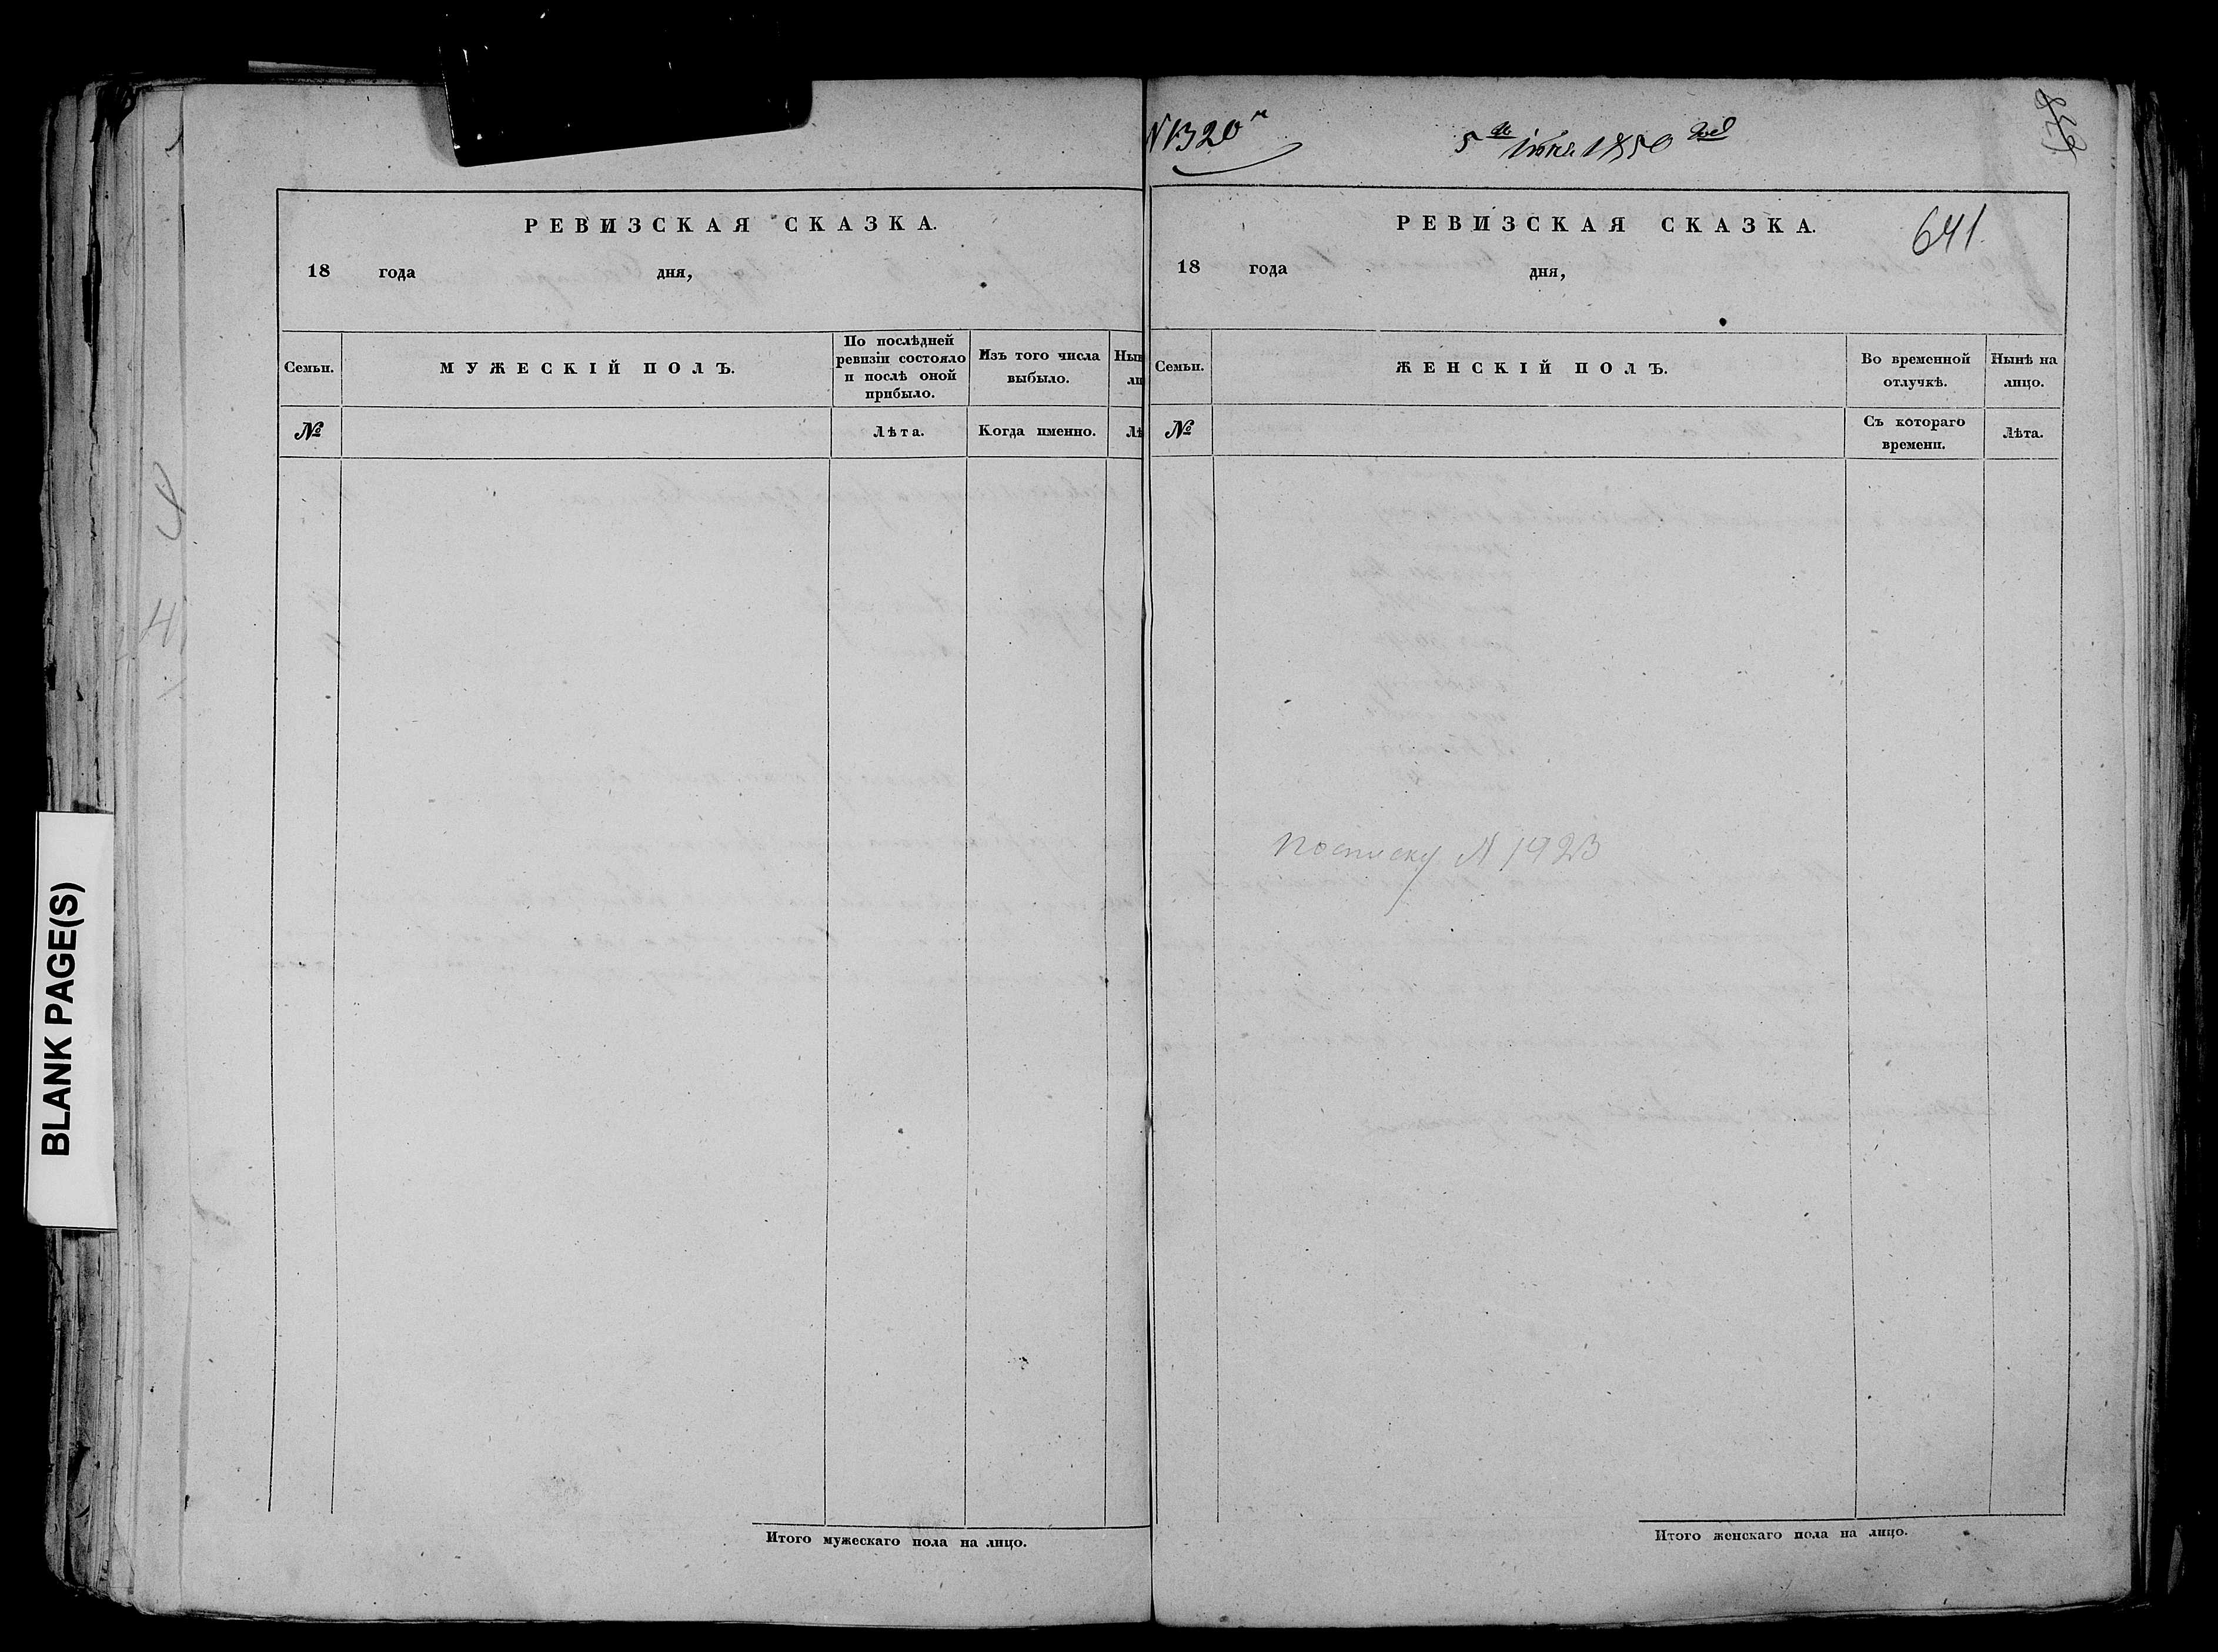 BLANK PAGE(S)
РЕВИЗСКАЯ СКАЗКА.
18 года дня,
Семьи.
МУЖЕСКІЙ ПОЛЪ.
По послѣдней
ревизіи состояло
и послѣ оной
прибыло.
Изъ того числа
выбыло.
Нын
ли
№
Лѣта.
Когда именно.
Лѣ
Итого мужескаго пола на лицо.
N 1320
5го Іюня 1850 года
638
РЕВИЗСКАЯ СКАЗКА.
641
18 года дня,
Семьи.
ЖЕНСКІЙ ПОЛЪ.
Во временной
отлучкѣ.
Нынѣ на
лицо.
№
Съ котораго
времени.
Лѣта.
По списку N 1923
Итого женскаго пола на лицо.